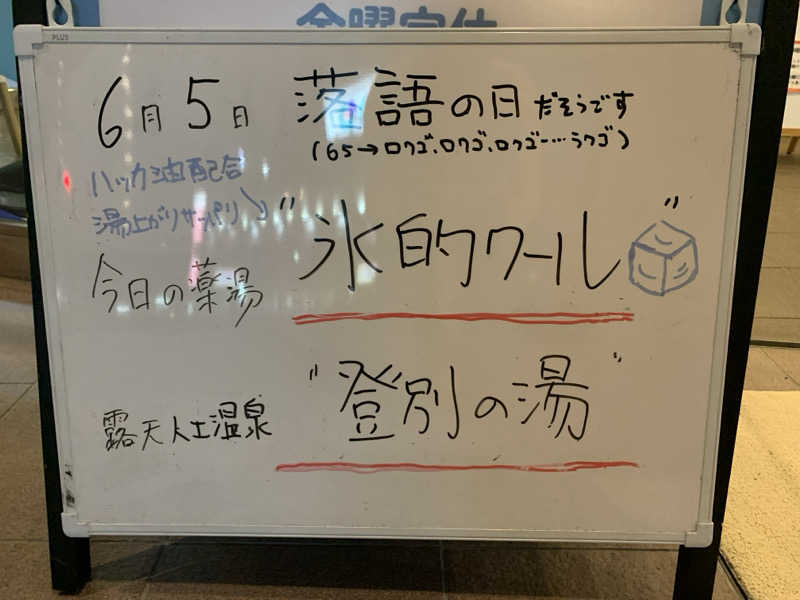 PLUS
6月5日 落語の日 だそうです
(65→ロクゴ、ロクゴ、ロクゴー…ラクゴ)
ハッカ油配合
湯上がりサッパリ
今日の薬湯 "氷的クール"
露天人工温泉 "登別の湯"